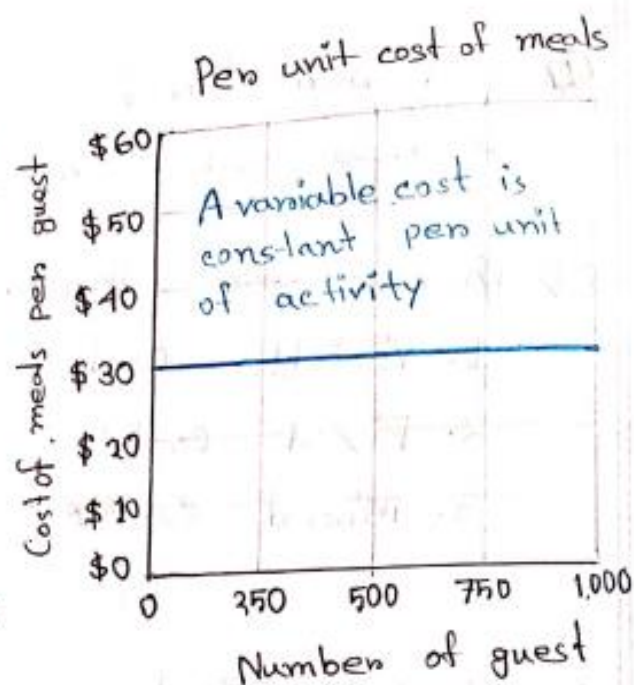 Per unit cost of meals
Cost of meals per guest
$60
$50
$40
$30
$20
$10
$0
A variable cost is
constant per unit
of activity
0 250 500 750 1,000
Number of guest